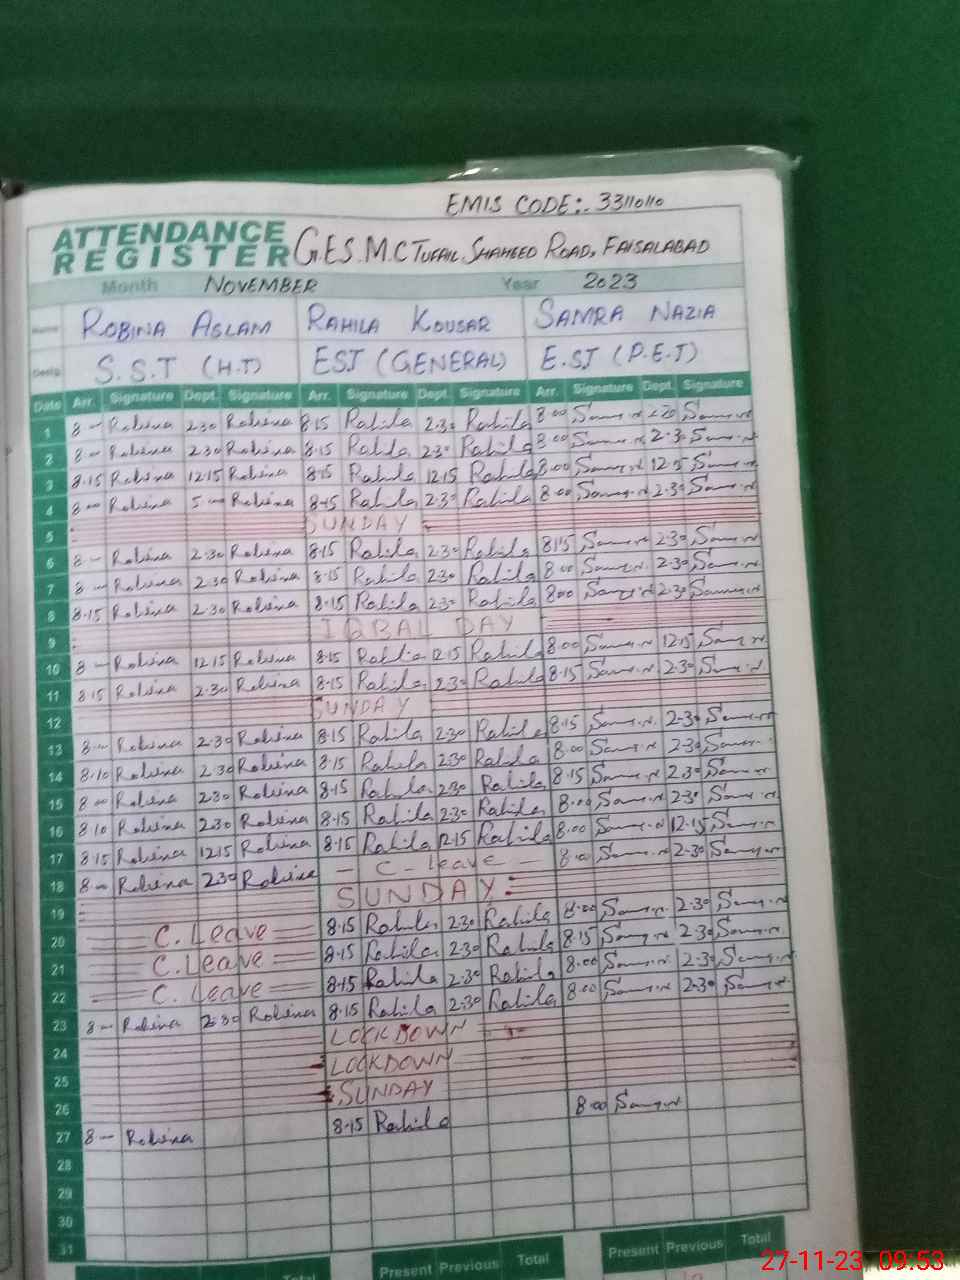 EMIS CODE:- 33110110
ATTENDANCE REGISTER G.E.S. M.C TUFAIL SHAHEED ROAD, FAISALABAD
Month NOVEMBER Year 2023
Name ROBINA ASLAM RAHILA KOUSAR SAMRA NAZIA
Desig. S.S.T (H.T) EST (GENERAL) E.ST (P.E.T)
Date Arr. Signature Dept. Signature Arr. Signature Dept. Signature Arr. Signature Dept. Signature
1 8 — Robina 2.30 Robina 8.15 Rahila 2.30 Rahila 8.00
2 8 — Robina 2.30 Robina 8.15 Rahila 2.30 Rahila 8.00 2.30
3 8.15 Robina 12.15 Robina 8.15 Rahila 12.15 Rahila 8.00 12.15
4 8 — Robina 5 — Robina 8.15 Rahila 2.30 Rahila 8.00 2.30
5 SUNDAY
6 8 — Robina 2.30 Robina 8.15 Rahila 2.30 Rahila 8.15 2.30
7 8 — Robina 2.30 Robina 8.15 Rahila 2.30 Rahila 8.00 2.30
8 8.15 Robina 2.30 Robina 8.15 Rahila 2.30 Rahila 8.00 2.30
9 IQBAL DAY
10 8 — Robina 12.15 Robina 8.15 Rahila 12.15 Rahila 8.00 12.15
11 8.15 Robina 2.30 Robina 8.15 Rahila 2.30 Rahila 8.15 2.30
12 SUNDAY
13 8 — Robina 2.30 Robina 8.15 Rahila 2.30 Rahila 8.15 2.30
14 8.10 Robina 2.30 Robina 8.15 Rahila 2.30 Rahila 8.00 2.30
15 8 — Robina 2.30 Robina 8.15 Rahila 2.30 Rahila 8.15 2.30
16 8.10 Robina 2.30 Robina 8.15 Rahila 2.30 Rahila 8.00 2.30
17 8.15 Robina 12.15 Robina 8.15 Rahila 12.15 Rahila 8.00 12.15
18 8 — Robina 2.30 Robina — C. Leave — 8.00 2.30
19 SUNDAY
20 C. Leave 8.15 Rahila 2.30 Rahila 8.00 2.30
21 C. Leave 8.15 Rahila 2.30 Rahila 8.15 2.30
22 C. Leave 8.15 Rahila 2.30 Rahila 8.00 2.30
23 8 — Robina 2.30 Robina 8.15 Rahila 2.30 Rahila 8.00 2.30
24 LOCKDOWN
25 LOCKDOWN
26 SUNDAY
27 8 — Robina 8.15 Rahila 8.00
28
29
30
31
Total Present Previous Total Present Previous Total
27-11-23 09:53